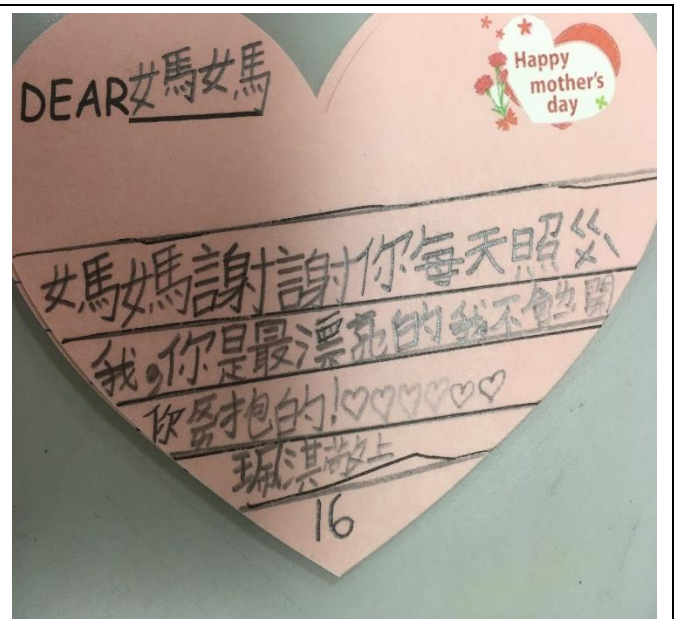 DEAR媽媽
Happy
mother's
day
媽媽謝謝你每天照ㄍㄨˋ
我,你是最漂亮的我不會開
你抱的!♡♡♡♡♡♡
珮淇敬上
16